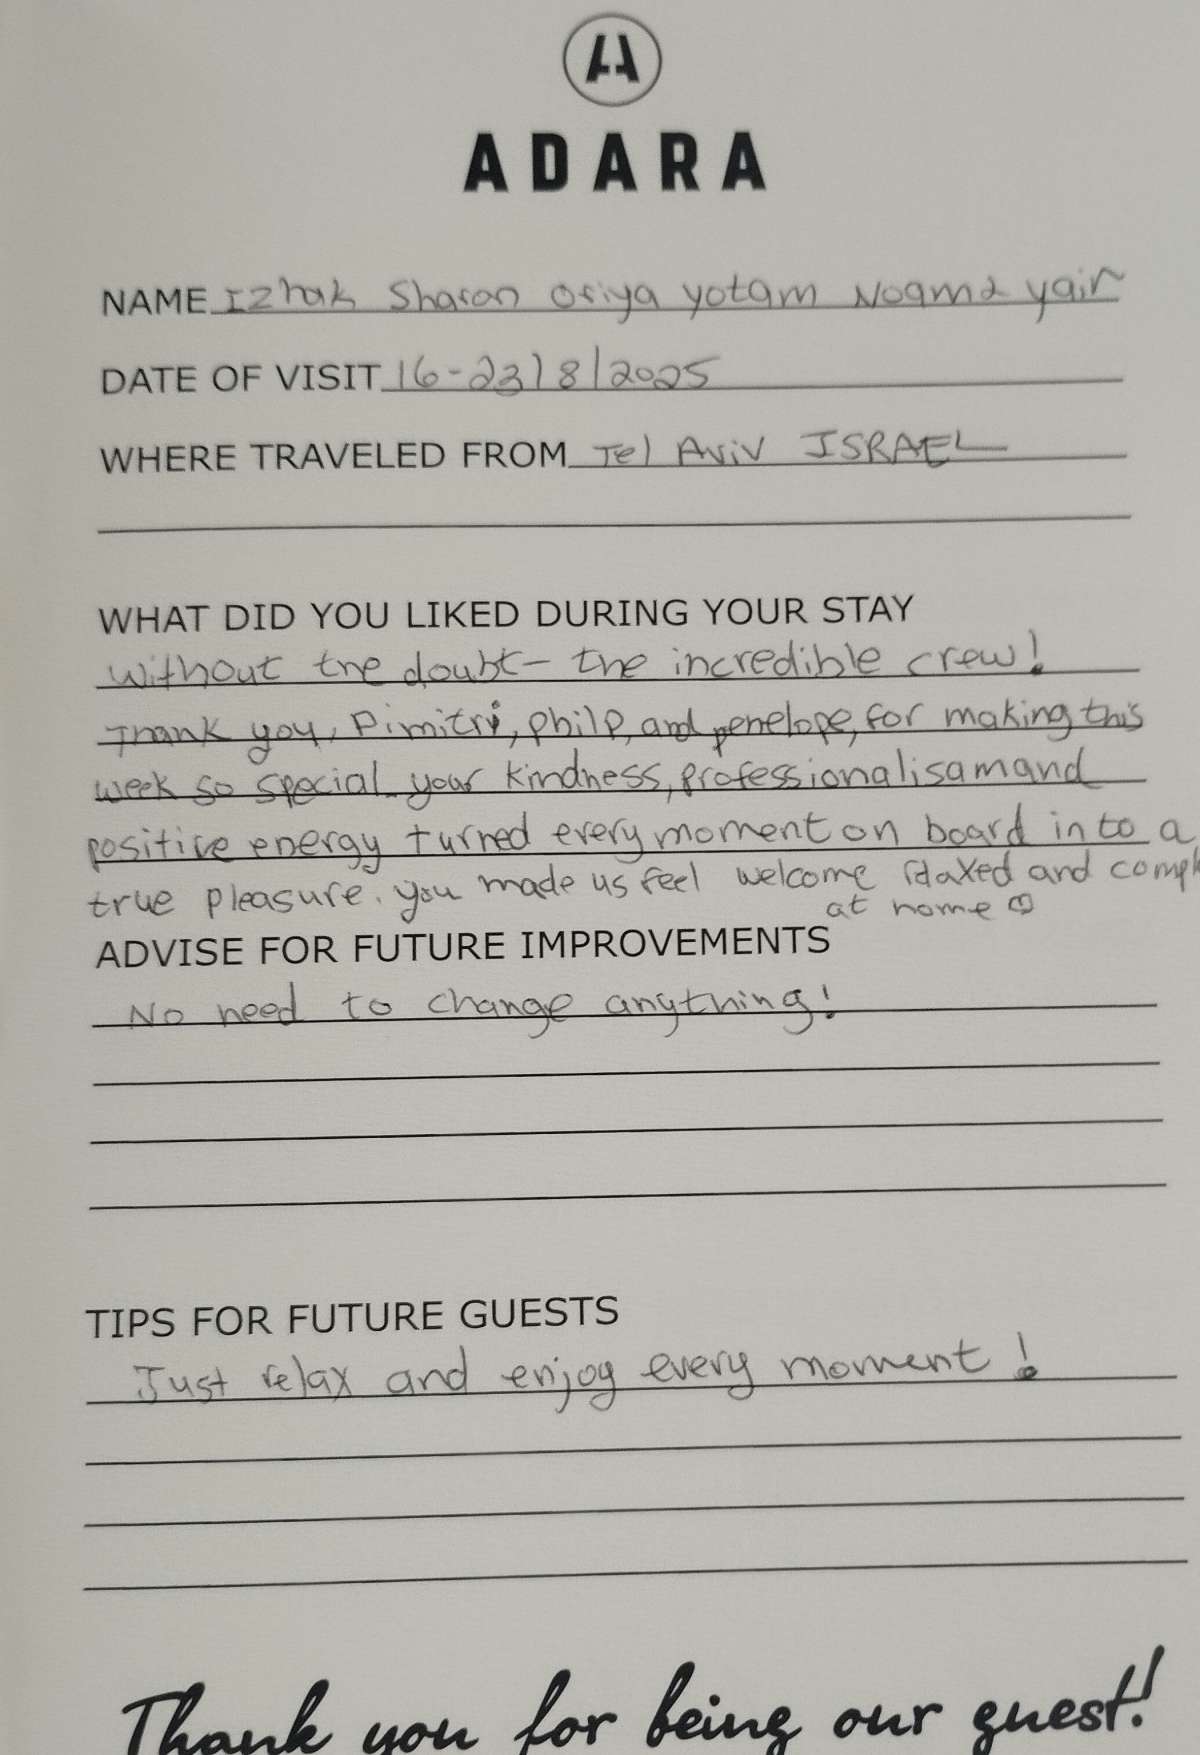 ADARA
NAME Izhak Sharon Oriya yotam Noama yair
DATE OF VISIT 16-23/8/2025
WHERE TRAVELED FROM Tel Aviv ISRAEL
WHAT DID YOU LIKED DURING YOUR STAY
Without the doubt - the incredible crew!
Thank you, Dimitri, philp, and penelope, for making this
week so special. your kindness, professionalisam and
positive energy turned every moment on board into a
true pleasure. you made us feel welcome relaxed and compl
at home ♡
ADVISE FOR FUTURE IMPROVEMENTS
No need to change anything!
TIPS FOR FUTURE GUESTS
Just relax and enjoy every moment!
Thank you for being our guest!